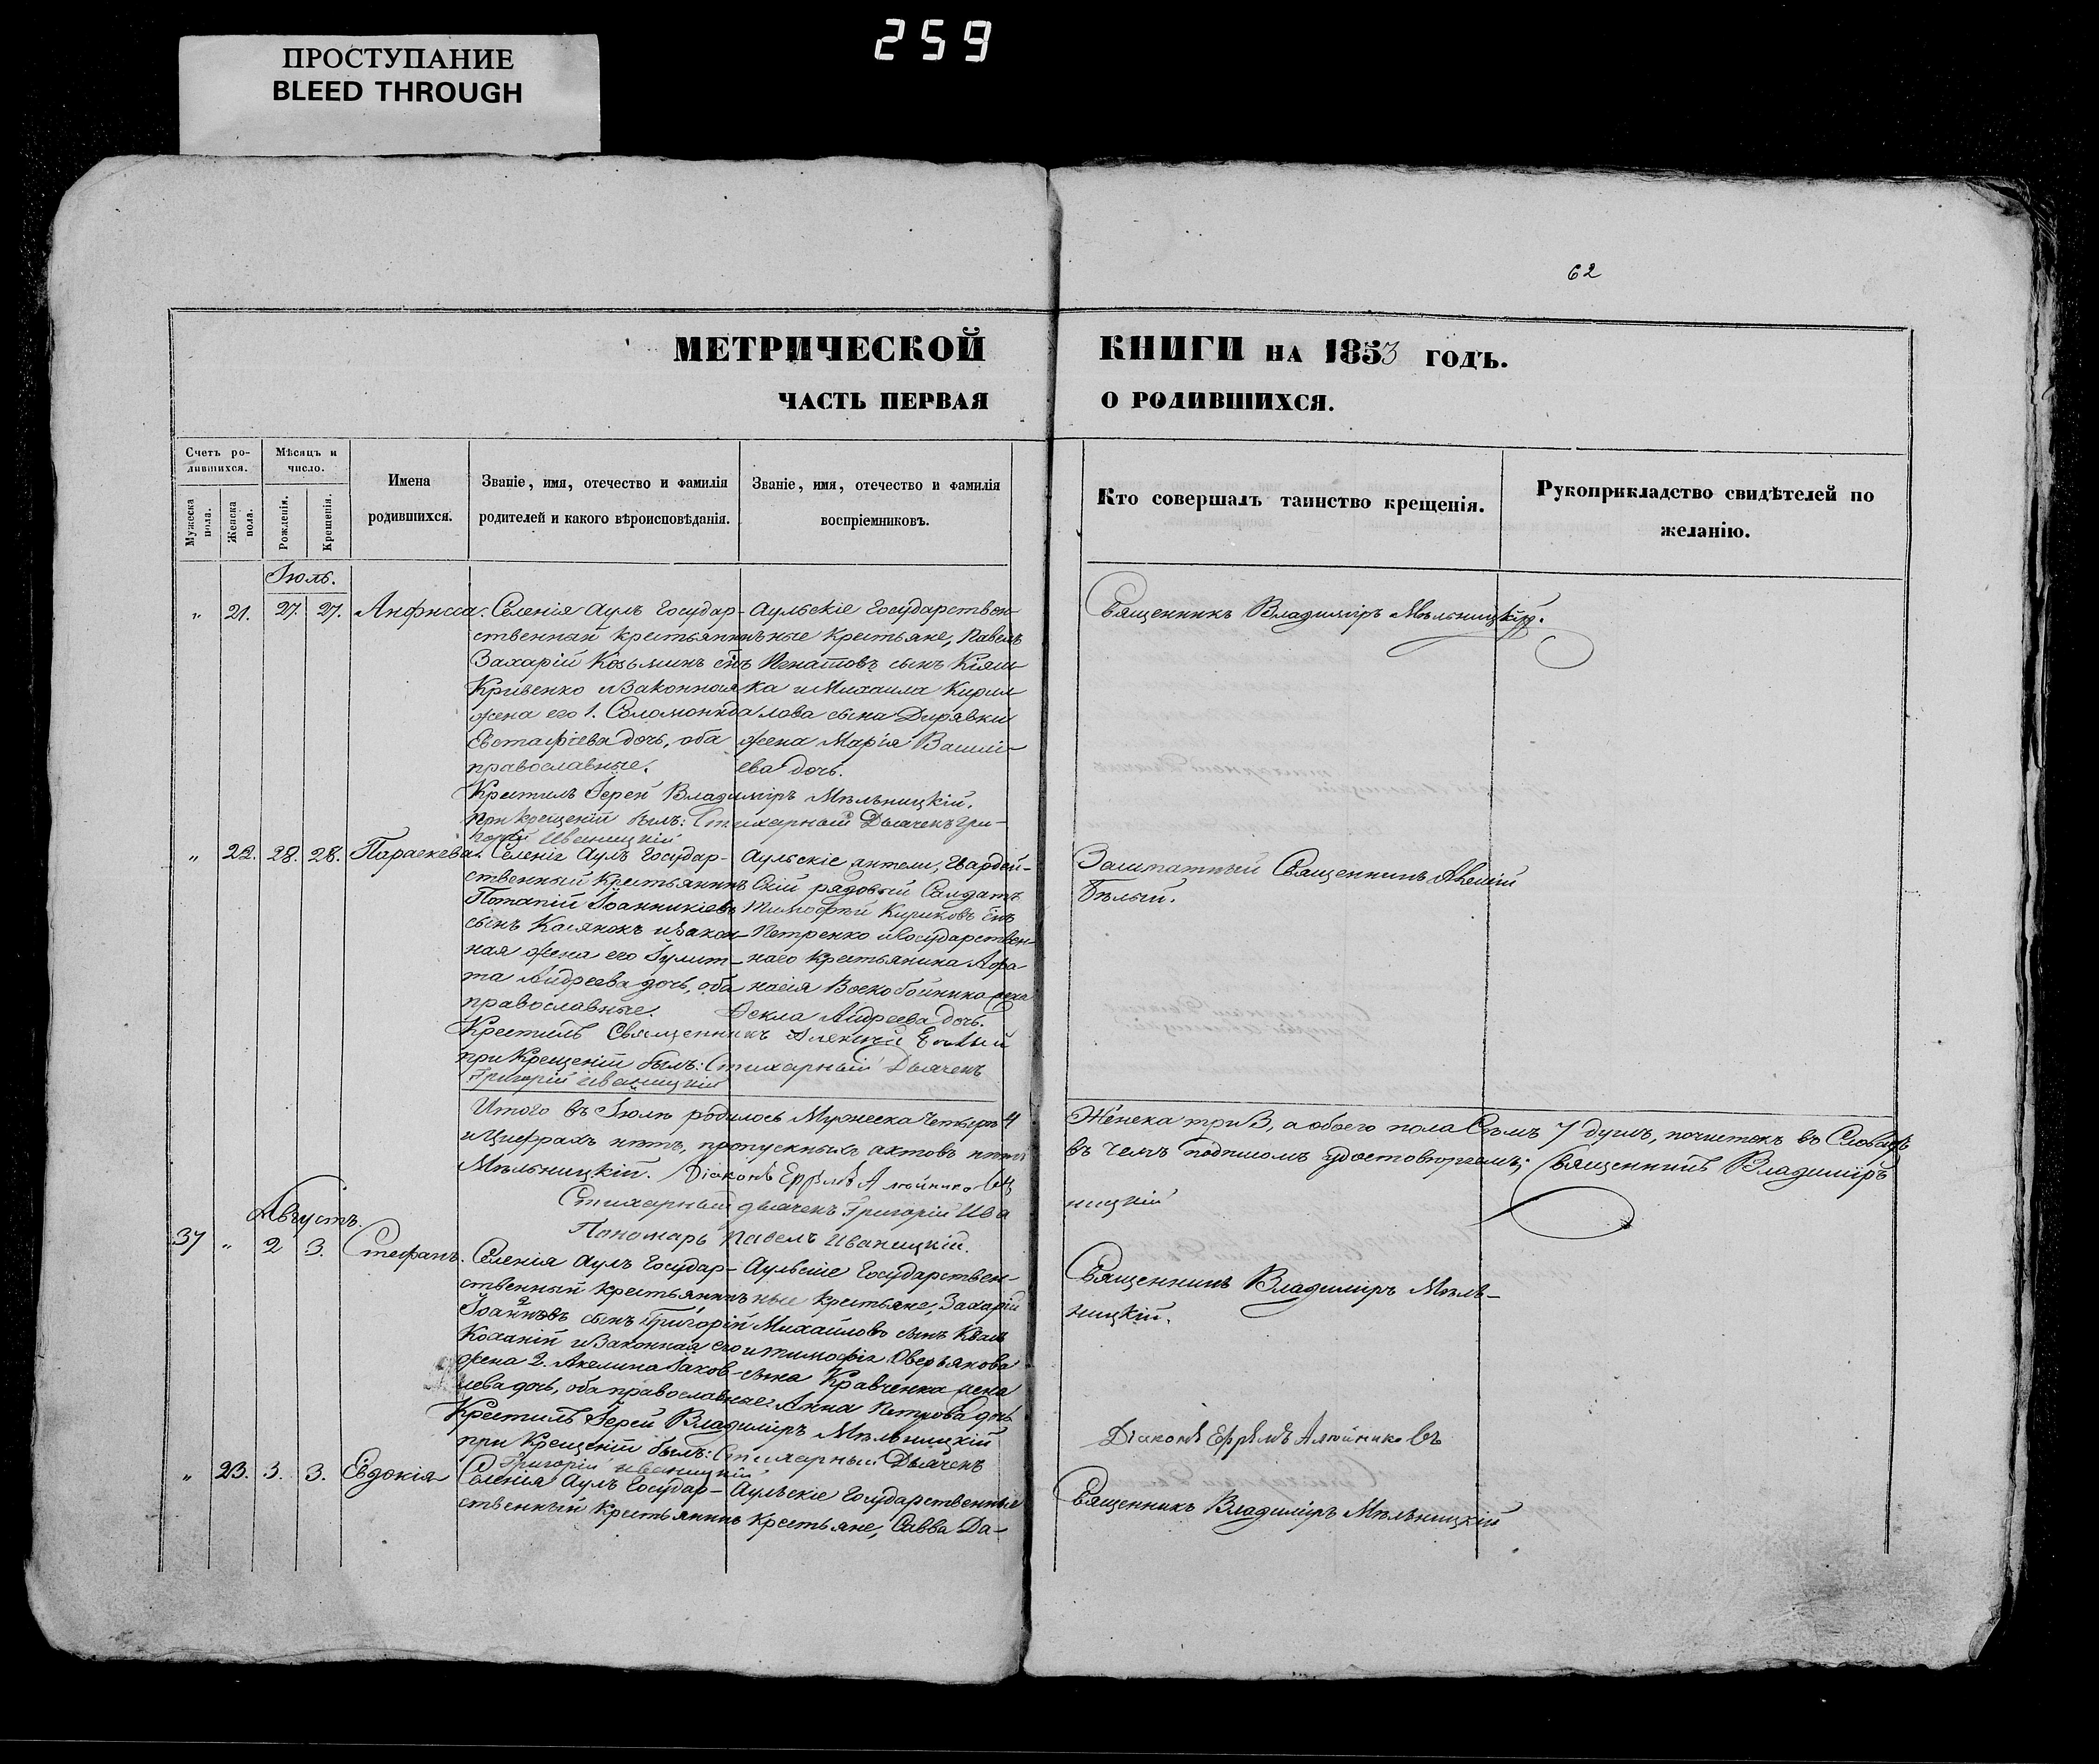 259
ПРОСТУПАНИЕ
BLEED THROUGH
62
МЕТРИЧЕСКОЙ КНИГИ НА 1853 ГОДЪ.
ЧАСТЬ ПЕРВАЯ О РОДИВШИХСЯ.
Счетъ ро-
дившихся.
Мужеска пола.
Женска пола.
Мѣсяцъ и
число.
Рожденія.
Крещенія.
Имена
родившихся.
Званіе, имя, отечество и фамилія
родителей и какого вѣроисповѣданія.
Званіе, имя, отечество и фамилія
воспріемниковъ.
Кто совершалъ таинство крещенія.
Рукоприкладство свидѣтелей по
желанію.
Іюль.
" 21. 27. 27. Анфисса.
Селенія Аулъ Государ-
ственный крестьянинъ
Захарій Козьминъ снъ
Кривенко и законная
жена его 1. Соломонида
Евстафіева дочь, оба
православные.
Аульскіе Государствен-
ные крестьяне, Павелъ
Игнатовъ сынъ Кіяш-
ка и Михаила Кирил
лова сына Дирявки
жена Марія Васили-
ева дочь.
Крестилъ Іерей Владиміръ Мѣльницкій.
При крещеніи былъ: Стихарный Дьячекъ Гри-
горій Иваницкій
Священникъ Владиміръ Мѣльницкій.
" 22. 28. 28. Параскева.
Селенія Аулъ Государ-
ственный Крестьянинъ
Потапій Іоанникіевъ
сынъ Касянокъ и закон-
ная жена его Іулит-
та Андреева дочь, оба
православные.
Аульскіе жители, Гвардей-
скій рядовый Солдатъ
Тимофей Кириковъ снъ
Петренко и Государствен-
наго Крестьянина Афа
насія Воскобойника жена
Фекла Андреева дочь.
Крестилъ Священникъ Алексій Бѣлый
при Крещеніи былъ: Стихарный Дьячекъ
Григорій Иваницкій
Заштатный Священникъ Алексій
Бѣлый.
Итого въ Іюлѣ родилось Мужеска четыре 4 Женска три 3, а обоего пола Семь 7 душъ, почистокъ въ Словахъ
и Цифрахъ нѣтъ, пропускныхъ актовъ нѣтъ въ чемъ подписомъ удостовѣряемъ; Священникъ Владиміръ
Мѣльницкій. Діаконъ Ефремъ Алейниковъ
Стихарный дьячекъ Григорій Ива ницкій
Пономарь Павелъ Иваницкій.
Августъ.
37 " 2 3. Стефанъ.
Селенія Аулъ Государ-
ственный крестьянинъ
Іоанновъ сынъ
и законная его
жена 2. Акелина Іаков-
лева дочь, оба православные.
Аульскіе Государствен-
ные крестьяне, Захарій
Михайловъ сынъ
и Тимофія Оверьянова
сына Кравченка жена
Анна Петрова дочь
Крестилъ Іерей Владиміръ Мѣльницкій
при Крещеніи былъ: Стихарный Дьячекъ
Григорій Иваницкій
Священникъ Владиміръ Мѣль-
ницкій.
Діаконъ Ефремъ Алейниковъ
" 23. 3. 3. Евдокія
Селенія Аулъ Государ-
ственный Крестьянинъ
Аульскіе Государственные
Крестьяне, Савва Да-
Священникъ Владиміръ Мѣльницкій